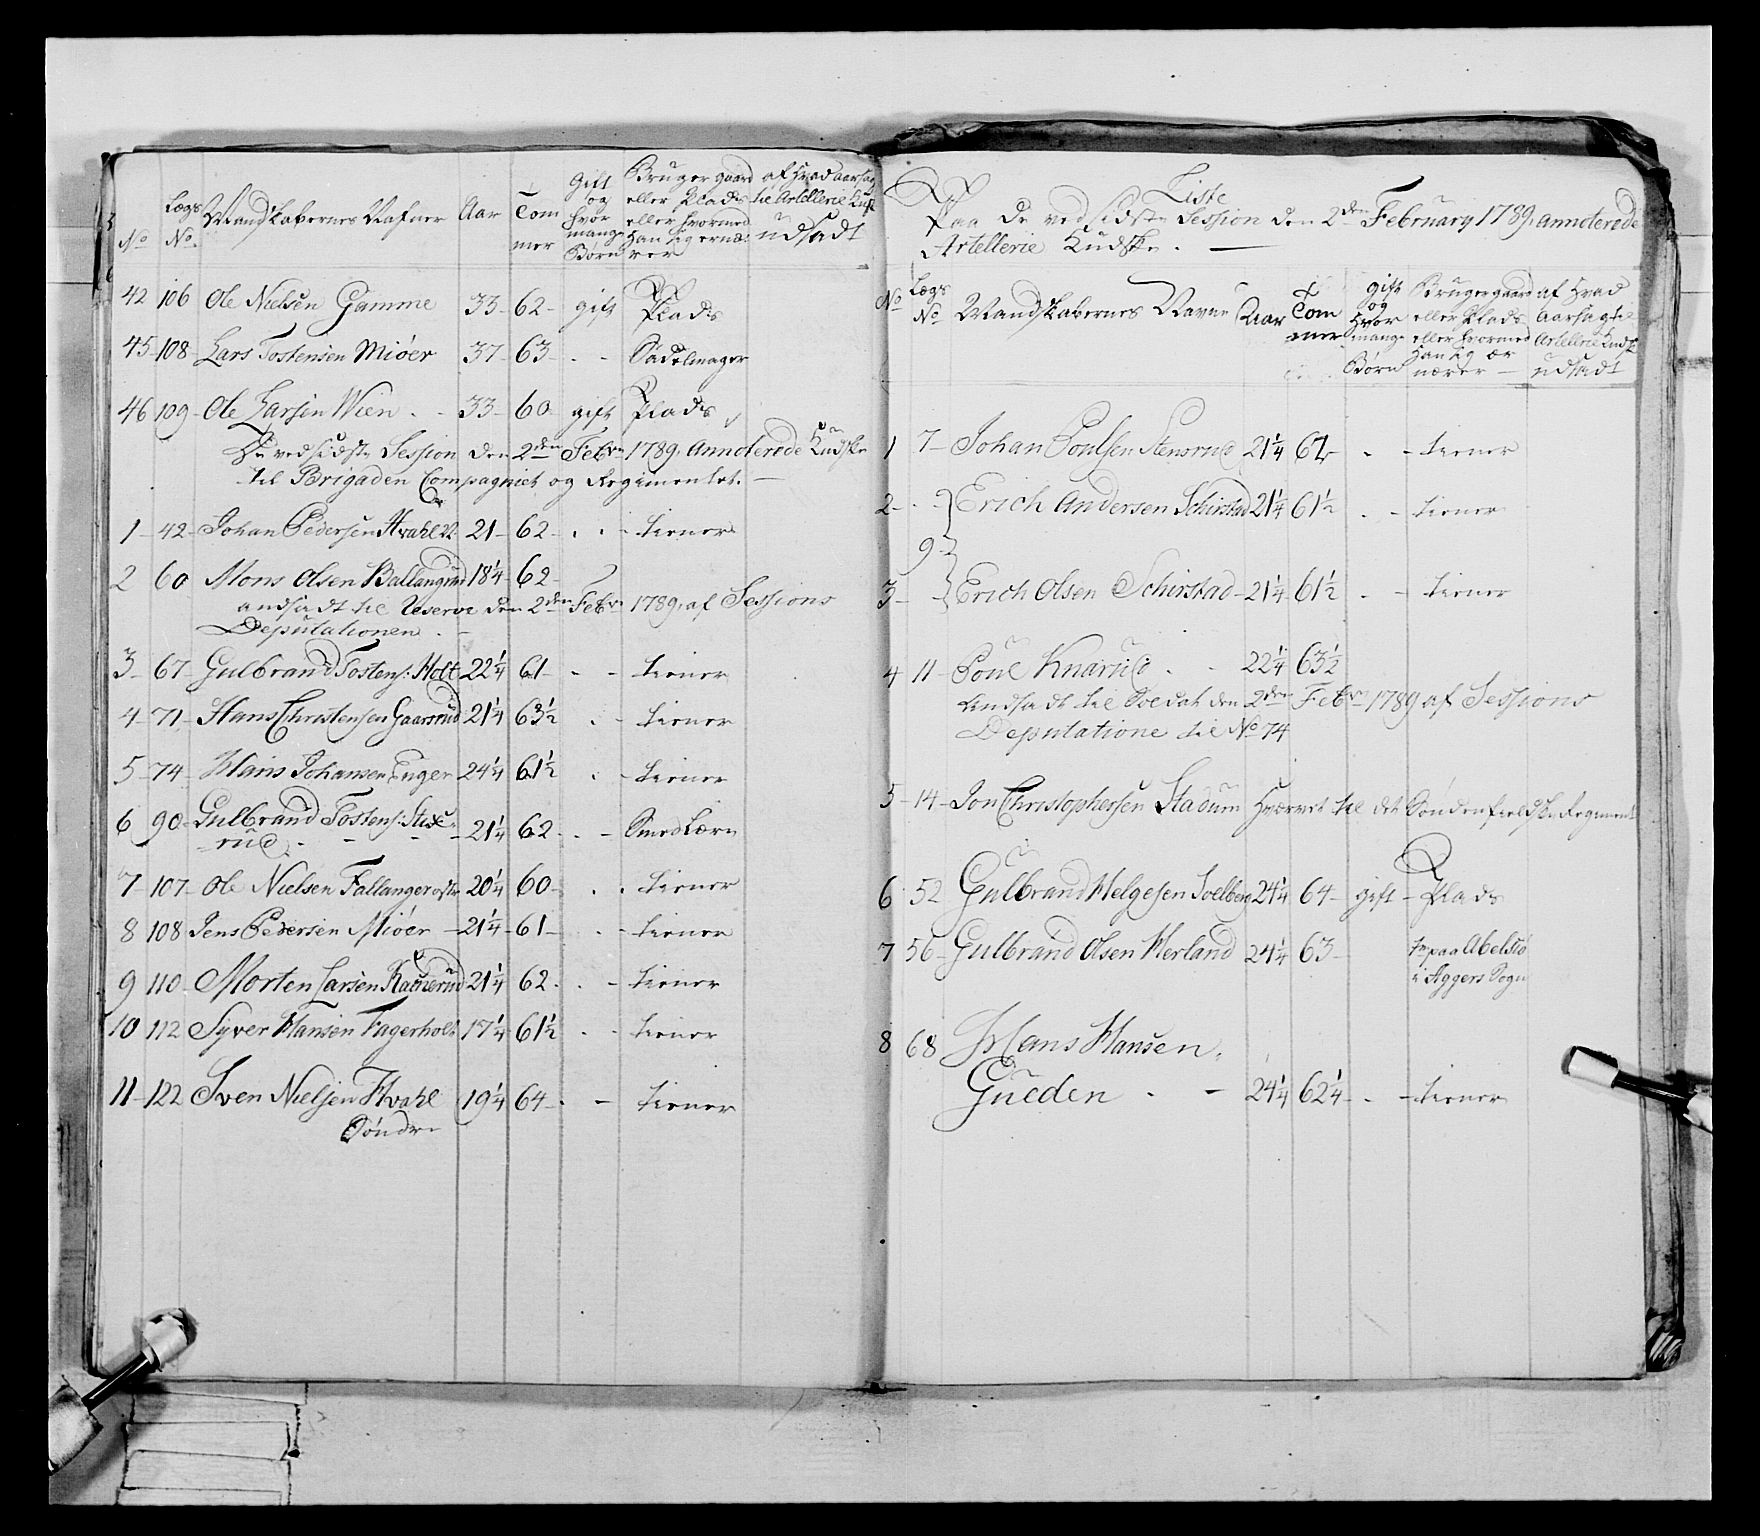 No
Lægs No.
Mandskabernes Nafner
Aar
Tommer
Gift og hvor mange Børn
Bruger gaard eller Plads eller hvormed han sig ernærer
af hvad aarsag til Artellerie Kusk udsadt
42 106 Ole Nielsen Gamme 33 62 gift Plads
45 108 Lars Tostensen Miöer 37 63 - - Sadelmager
46 109 Ole Larsen Wien 33 60 gift Plads
De ved sidste Session den 2den Febr 1789 Annoterede Kudske
til Brigaden Compagniet og Regimentet.
1 42 Johan Pedersen Hvahl N. 21 62 - - tiener
2 60 Mons Olsen Ballangrud 18¼ 62
andsadt til Reserve den 2den Febr 1789, af Sessions
Deputationen.
3 67 Gulbrand Tostens: Holt 22¼ 61 - - tiener
4 71 Hans Christensen Gaarsrud 21¼ 63½ - - tiener
5 74 Hans Johansen Enger 24¼ 61½ - - tiener
6 90 Gulbrand Tostens: Stuxe-
rud 21¼ 62 - - Smed Lærn
7 107 Ole Nielsen Fallanger östr 20¼ 60 - - tiener
8 108 Jens Pedersen Miöer 21¼ 61 - - tiener
9 110 Morten Larsen 21¼ 62 - - tiener
10 112 Syver Hansen Fagerholt 17¼ 61½ - - tiener
11 122 Sven Nielsen Hvahl 19¼ 64 - - tiener
Söndre
Liste
Paa de ved sidste Session den 2den February 1789 annoterede
Artellerie Kudske.
No
Lægs No
Mandskabernes Navne
Aar
Tommer
gift og Hvor mange Børn
Bruger gaard eller Plads eller hvormed Han sig ærnærer
af Hvad Aarsag til Artellerie Kudsk udsadt
1 7 Johan Poulsen Stensrud 21¼ 61 - - tiener
2 - Erich Andersen Schirstad 21¼ 61½ - - tiener
9
3 - Erich Olsen Schirstad 21¼ 61½ - - tiener
4 11 Poul Knarud 22¼ 63½
Andsadt til Soldat den 2den Febr 1789 af Sessions
Deputatione til No 74
5 14 Jon Christophersen Stadum Hværvet til det Søndenfieldske Regiment
6 52 Gulbrand Helgesen Soelberg 24¼ 64 gift Plads
7 56 Gulbrand Olsen Herland 24¼ 63 tr paa Abelsö
i Aggers Sogn
8 68 Hans Hansen
Gueden 24¼ 62¼ - - tiener